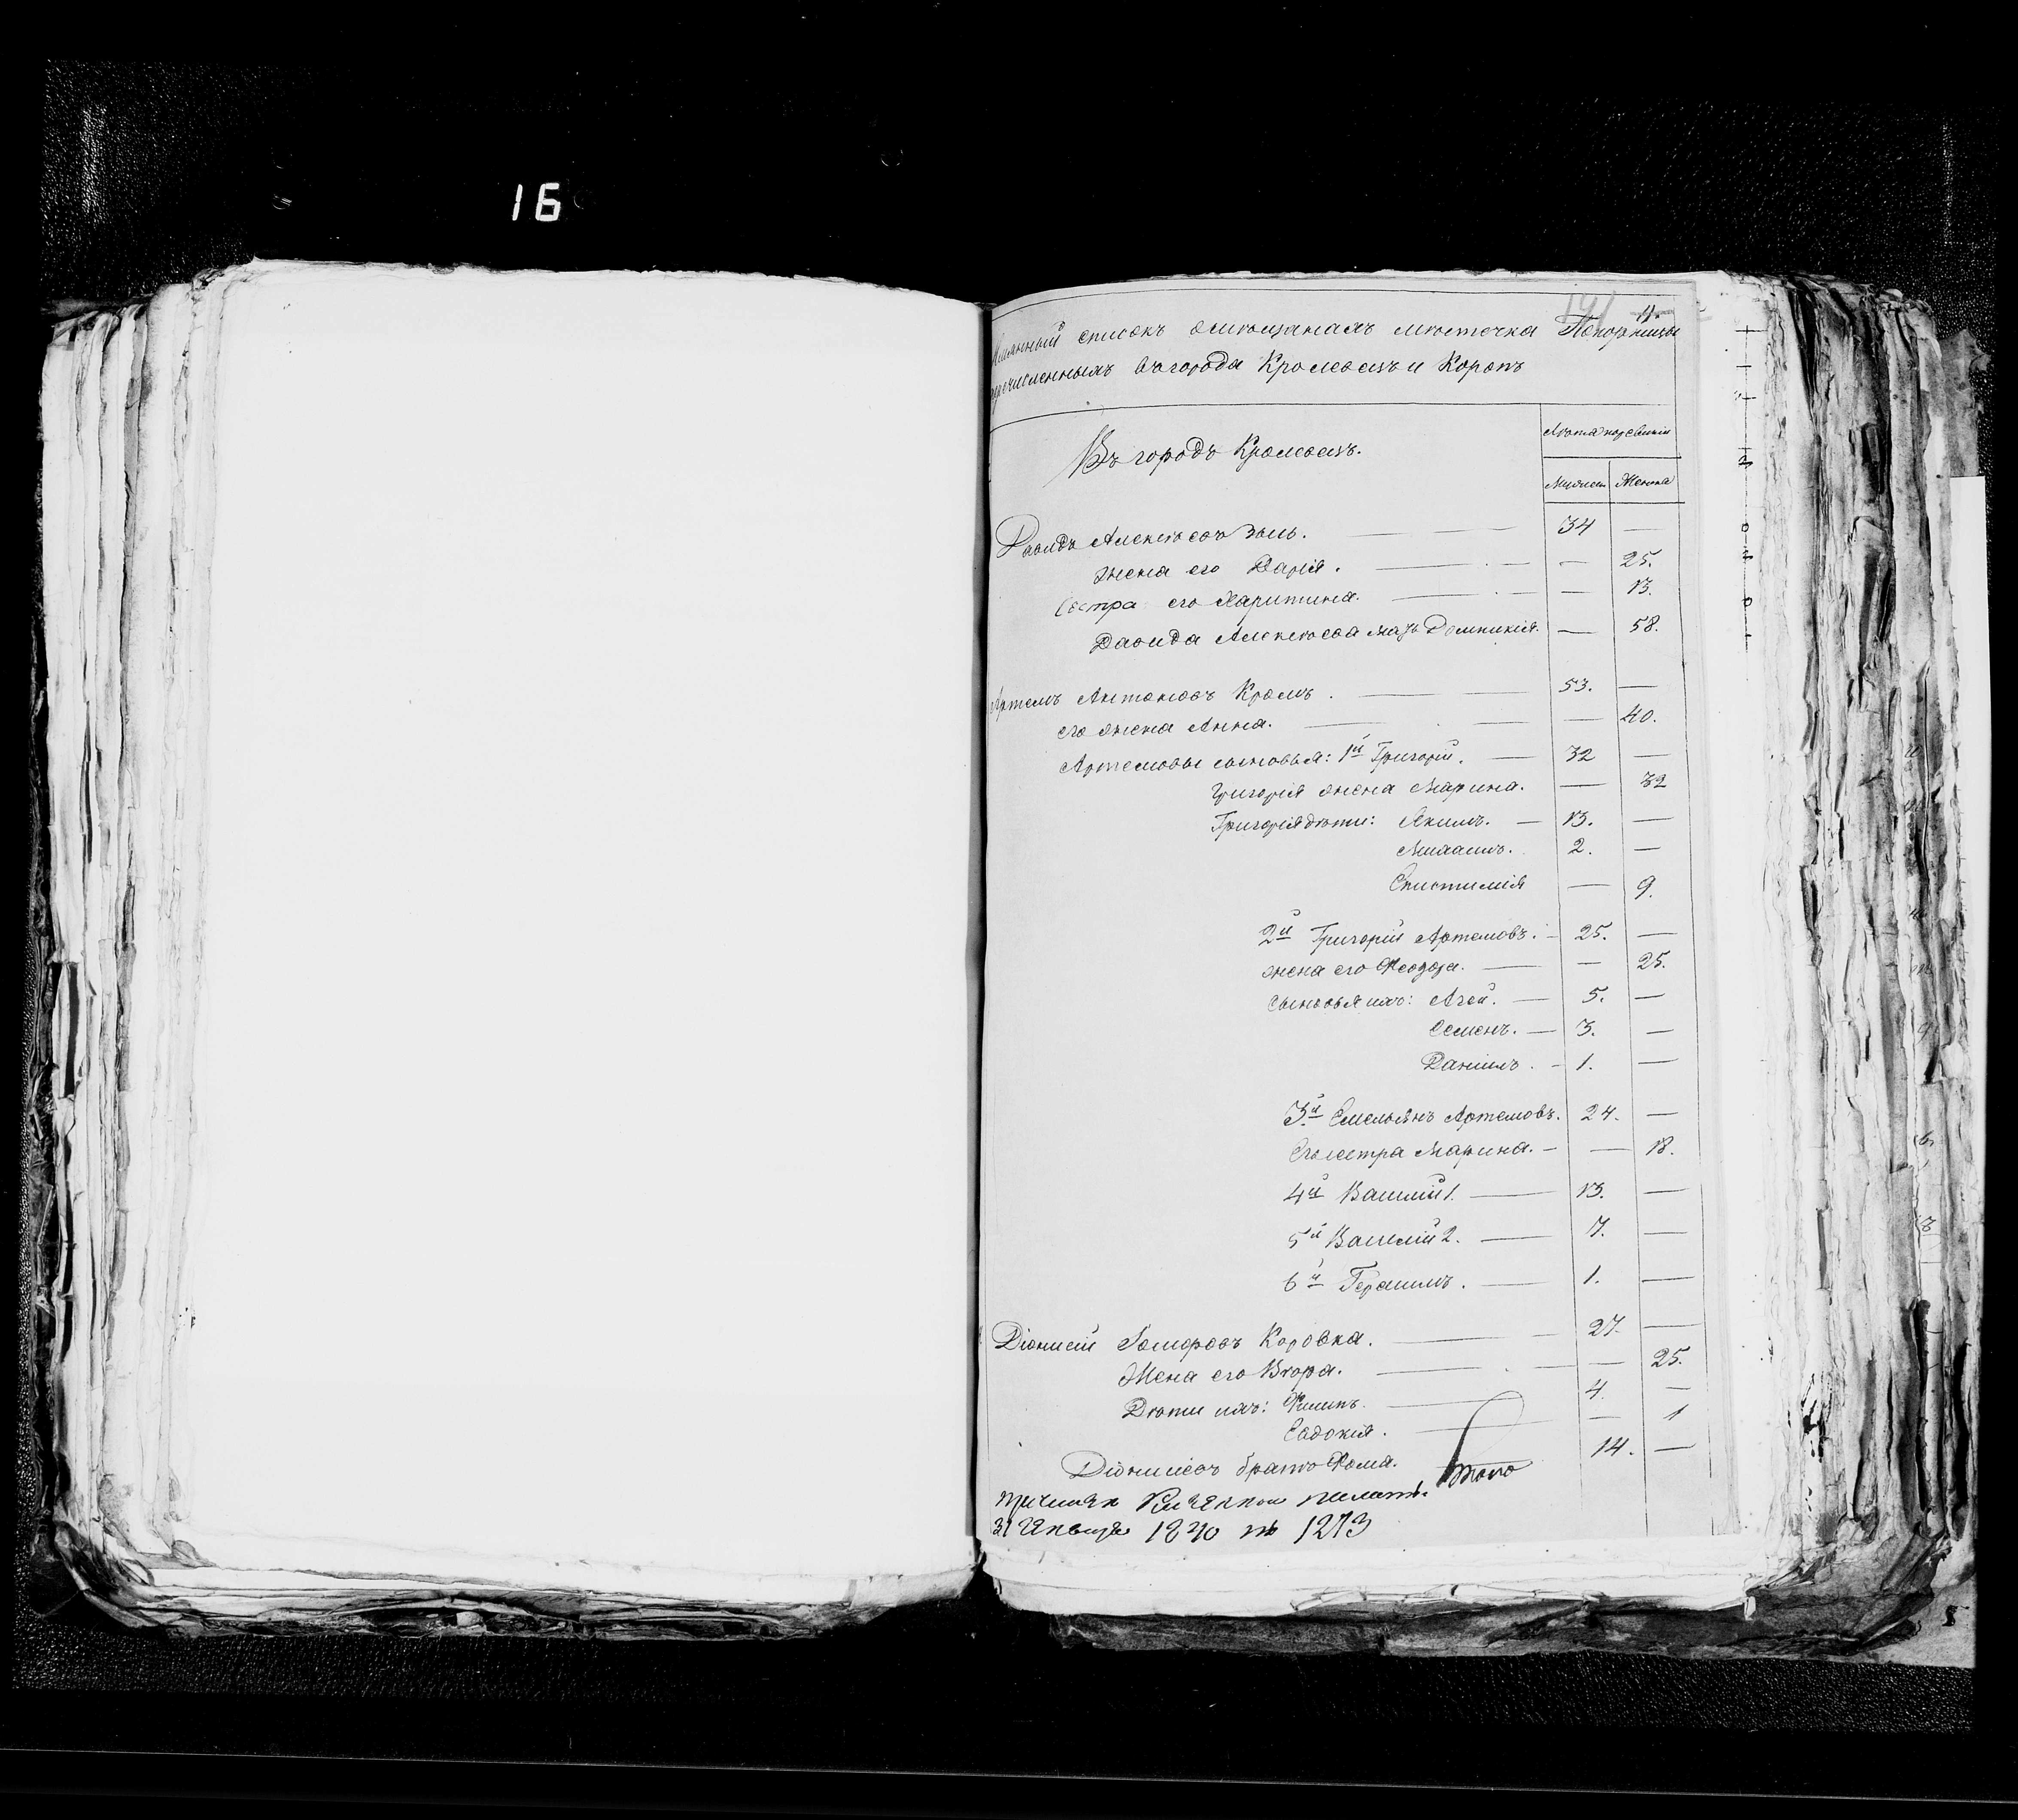 16
11.
Имянный списокъ о мещанахъ местечка Понорницы
перечисленныхъ въ города Кролевецъ и Коропъ
Въ городъ Кролевецъ.
Лета по ревизіи
Мужеск Женска
Давидъ Алексеевъ 34 —
Жена его Дарія. — 25.
Сестра его Харитина. — 13.
Давида Алексеева мать Домникія. — 58.
Артемъ Антоновъ Кроль. 53. —
его жена Анна. — 40.
Артемовы сыновья: 1й Григорій. 32 —
Григорія жена Марина. — 32
Григорія дети: Якимъ. 13. —
Михаилъ. 2. —
Епистимія — 9.
2й Григорій Артемовъ. 25. —
жена его Феодора. — 25.
Сыновья ихъ: Агей. 5. —
Семенъ. 3. —
Даніилъ. 1. —
3й Емельянъ Артемовъ. 24. —
Его сестра Марина. — 18.
4й Василій 1. 13. —
5й Василій 2. 7. —
6й Герасимъ. 1. —
Діонисій Коровка. 27. —
Жена его Вера. — 25.
Дети ихъ: Филипъ. 4. —
Евдокія. — 1
Діонисіевъ братъ Фома. 14. —
31 Января 1830 № 1273